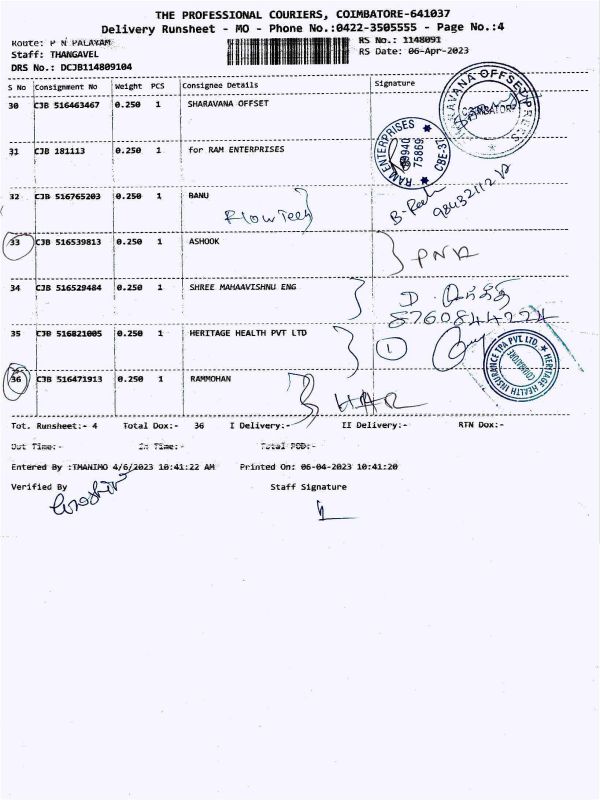 THE PROFESSIONAL COURIERS, COIMBATORE-641037
Delivery Runsheet - MO - Phone No.:0422-3505555 - Page No.:4
Route: P N PALAYAM
RS No.: 1148091
Staff: THANGAVEL
RS Date: 06-Apr-2023
DRS No.: DCJB114809104
S No Consignment No Weight PCS Consignee Details Signature
30 CJB 516463467 0.250 1 SHARAVANA OFFSET
SHARAVANA OFFSET COIMBATORE
31 CJB 181113 0.250 1 for RAM ENTERPRISES
RAM ENTERPRISES 75889 CBE-37
32 CJB 516765203 0.250 1 BANU
FlowTech
33 CJB 516539813 0.250 1 ASHOOK
PNR
34 CJB 516529484 0.250 1 SHREE MAHAAVISHNU ENG
D
8760844224
35 CJB 516821005 0.250 1 HERITAGE HEALTH PVT LTD
1
HERITAGE HEALTH INSURANCE TPA PVT. LTD. COIMBATORE
36 CJB 516471913 0.250 1 RAMMOHAN
Tot. Runsheet:- 4 Total Dox:- 36 I Delivery:- II Delivery:- RTN Dox:-
Out Time:- In Time:- Total POD:-
Entered By :TMANIMO 4/6/2023 10:41:22 AM Printed On: 06-04-2023 10:41:20
Verified By Staff Signature